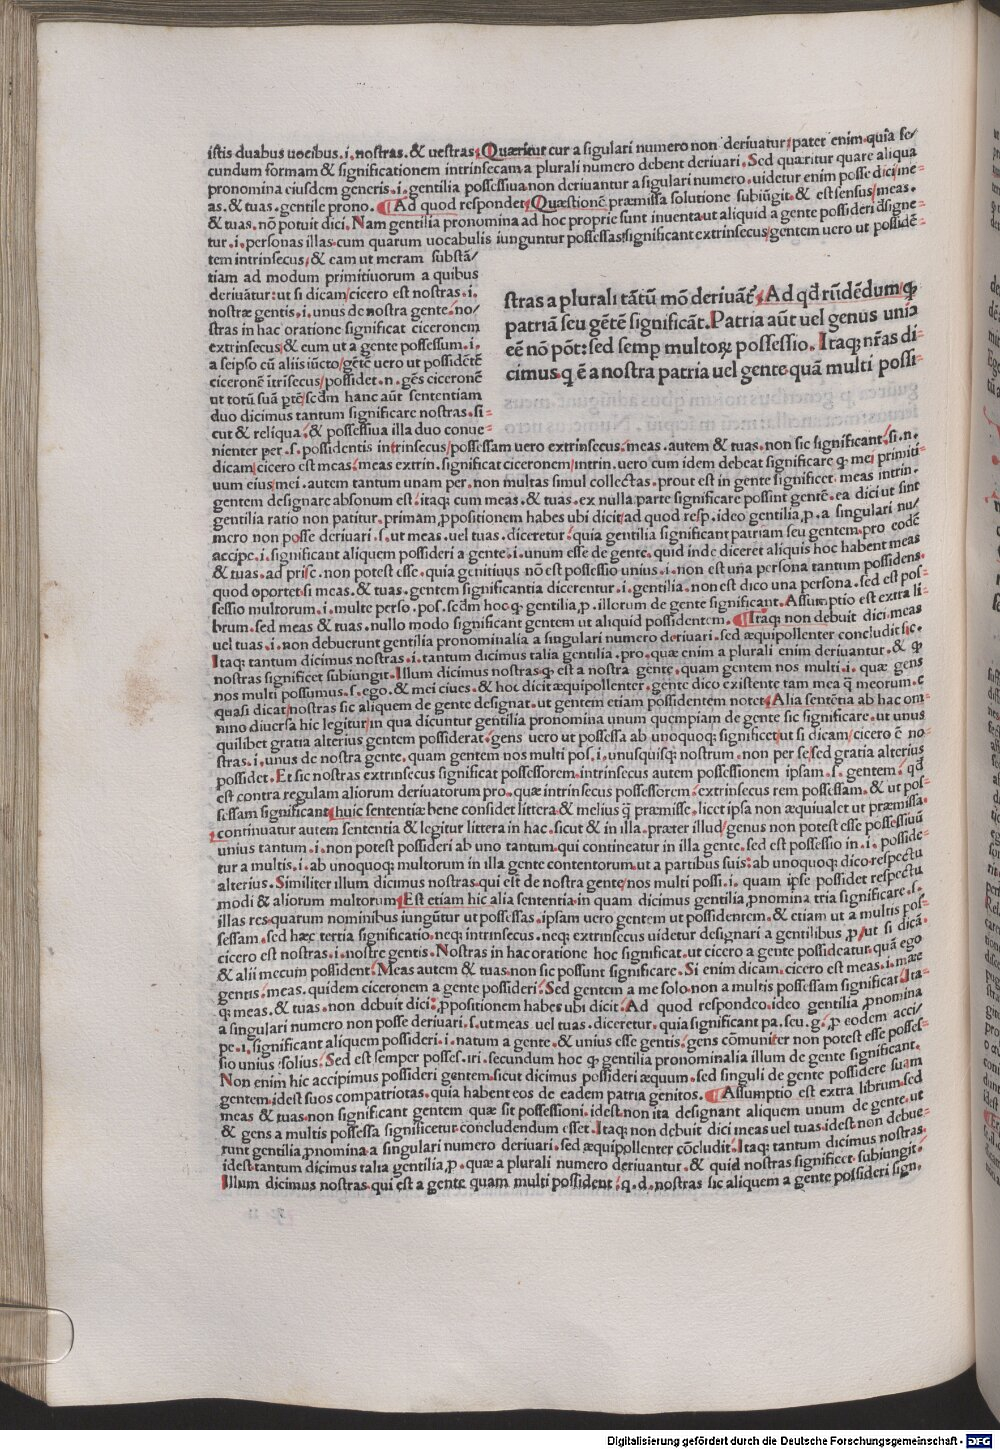 istis duabus uocibus.i.nostras.& uestras.Quæritur cur a sigulari numero non deriuatur/pater enim quia se/
cundum formam & significationem intrinsecam a plurali numero debent deriuari.Sed quæritur quare aliqua
pronomina eiusdem generis.i.gentilia possessiua non deriuantur a sigulari numero.uidetur enim posse dici/me=
as.& tuas.gentile prono. ¶Ad quod respondet/Quæstionē præmissa solutione subiūgit.& est sensus/meas.
& tuas.nō potuit dici.Nam gentilia pronomina ad hoc proprie sunt inuenta/ut aliquid a gente possideri dsigne=
tur.i.personas illas.cum quarum uocabulis iunguntur possessas/significant extrinsecus/gentem uero ut possidē=
tem intrinsecus/& cam ut meram substā/
tiam ad modum primitiuorum a quibus
deriuātur:ut si dicam/cicero est nostras.i.
nostræ gentis.i.unus de nostra gente.no/
stras in hac oratione significat ciceronem
extrinsecus/& eum ut a gente possessum.i.
a seipso cū aliis iūcto/gētē uero ut possidētē
ciceronē ītrisecus/possidet.n.gēs ciceronē
ut totū suā ptē/scdm hanc aūt sententiam
duo dicimus tantum significare nostras.si=
cut & reliqua.& possessiua illa duo conue=
stras a plurali tātū mō deriuāt̄.Ad qd̄ rn̄dēdum/ꝙ
patriā seu gētē significāt.Patria aūt uel genus uniꝰ
eē nō pōt:sed semp multoꝝ possessio.Itaqꝫ nr̄as di
cimus.q ē a nostra patria uel gente quā multi possi=
nienter per.s.possidentis intrinsecus/possessam uero extrinsecus.meas.autem & tuas.non sic significant.si.n.
dicam/cicero est meas.meas extrin.significat ciceronem/intrin.uero cum idem debeat significare ꝙ mei primiti=
uum eius/mei.autem tantum unam per.non multas simul collectas.prout est in gente significet.meas intrin.
gentem designare absonum est.itaqꝫ cum meas.& tuas.ex nulla parte significare possint gentē.ea dici ut sint
gentilia ratio non patitur.primam,ppositionem habes ubi dicit/ad quod resp.ideo gentilia,p.a singulari nu/
mero non posse deriuari.s.ut meas uel tuas.diceretur.quia gentilia significant patriam seu gentem.pro eodē
accipe.i.significant aliquem possideri a gente.i.unum esse de gente.quid inde diceret aliquis hoc habent meas
& tuas.ad prisc.non potest esse.quia genitiuus nō est possessio unius.i.non est una persona tantum possidens.
quod oportet/si meas.& tuas.gentem significantia dicerentur.i.gentilia.non est dico una persona.sed est pos=
sessio multorum.i.multe perso.pos.scdm hoc q.gentilia,p.illorum de gente significant.Assumptio est extra li=
brum.sed meas & tuas.nullo modo significant gentem ut aliquid possidentem. ¶Itaqꝫ non debuit dici.meas
uel tuas.i.non debuerunt gentilia pronominalia a singulari numero deriuari.sed æquipollenter concludit sic.
Itaqꝫ tantum dicimus nostras.i.tantum dicimus talia gentilia.pro.quæ enim a plurali enim deriuantur.& ꝙ
nostras significet subiungit.Illum dicimus nostras.q.est a nostra gente.quam gentem nos multi.i.quæ gens
nos multi possumus.s.ego.& mei ciues.& hoc dicit æquipollenter.gente dico existente tam mea q̄ meorum.e
quasi dicat/nostras sic aliquem de gente designat.ut gentem etiam possidentem notet.Alia sentētia ab hac om=
nino diuersa hic legitur/in qua dicuntur gentilia pronomina unum quempiam de gente sic significare.ut unus
quilibet gratia alterius gentem possiderat.gens uero ut possessa ab unoquoqꝫ significet/ut si dicam/cicero ē no=
stras.i.unus de nostra gente.quam gentem nos multi pos.i.unusquisqꝫ nostrum.non per se/sed gratia alterius
possidet.Et sic nostras extrinsecus significat possessorem.intrinsecus autem possessionem ipsam.s.gentem.qd̄
est contra regulam aliorum deriuatorum pro.quæ intrinsecus possessorem.extrinsecus rem possessam.& ut pos=
sessam significant/huic sententiæ bene considet littera & melius q̄ præmisse.licet ipsa non æquiualet ut præmissa.
continuatur autem sententia & legitur littera in hac.sicut & in illa.præter illud/genus non potest esse possessiuū
unius tantum.i.non potest possideri ab uno tantum.qui contineatur in illa gente.sed est possessio in.i.posside=
tur a multis.i.ab unoquoqꝫ multorum in illa gente contentorum.ut a partibus suis:ab unoquoqꝫ dico respectu
alterius.Similiter illum dicimus nostras.qui est de nostra gente/nos multi possi.i.quam ipse possidet respectu
modi & aliorum multorum/Est etiam hic alia sententia in quam dicimus gentilia,pnomina tria significare.s.
illas res.quarum nominibus iungūtur ut possessas.ipsam uero gentem ut possidentem.& etiam ut a multis pos=
sessam.sed hæc tertia significatio.neqꝫ intrinsecus.neqꝫ extrinsecus uidetur designari a gentilibus,p/ut si dicā.
cicero est nostras.i.nostre gentis.Nostras in hac oratione hoc significat.ut cicero a gente possideatur.quā ego
& alii mecum possident.Meas autem & tuas.non sic possunt significare.Si enim dicam.cicero est meas.i.mææ
gentis.meas.quidem ciceronem a gente possideri.Sed gentem a me solo.non a multis possessam significat.Ita=
qꝫ meas.& tuas.non debuit dici:,ppositionem habes ubi dicit.Ad quod respondeo.ideo gentilia,pnomina
a singulari numero non posse deriuari.s.ut meas uel tuas.diceretur.quia significant pa.seu.g.,p eodem acci/
pe.i.significant aliquem possideri.i.natum a gente.& unius esse gentis.gens cōmuniter non potest esse posses=
sio unius isolius.Sed est semper posses.iri.secundum hoc ꝙ gentilia pronominalia illum de gente significant.
Non enim hic accipimus possideri gentem.sicut dicimus possideri æquum.sed singuli de gente possidere suam
gentem.idest suos compatriotas.quia habent eos de eadem patria genitos. ¶Assumptio est extra librum.sed
meas & tuas.non significant gentem quæ sit possessioni.idest non ita designant aliquem unum de gente.ut
& gens a multis possessa significetur.concludendum esset.Itaqꝫ non debuit dici meas uel tuas.idest non debue=
runt gentilia,pnomina a singulari numero deriuari.sed æquipollenter cōcludit.Itaqꝫ tantum dicimus nostras.
idest tantum dicimus talia gentilia,p.quæ a plurali numero deriuantur.& quid nostras significet subiungit.
Illum dicimus nostras.qui est a gente quam multi possident.q.d.nostras sic aliquem a gente possideri sign.
Digitalisierung gefördert durch die Deutsche Forschungsgemeinschaft - DFG